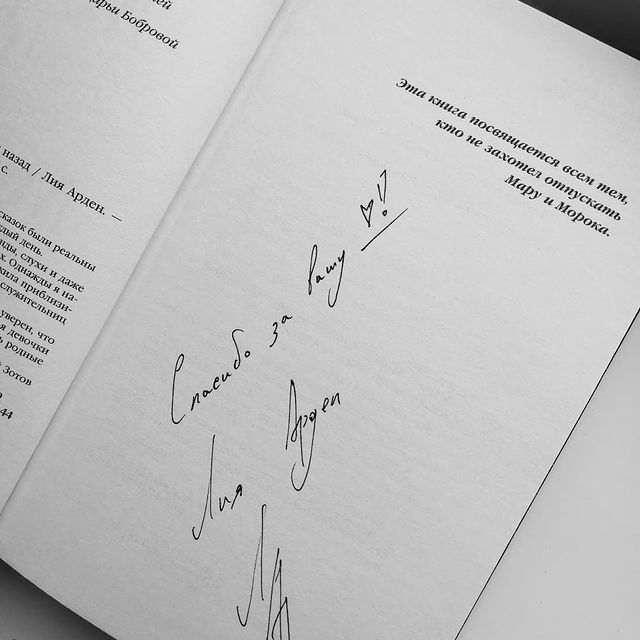 ей
арьи Бобровой
назад / Лия Арден. —
с.
сказок были реальны
ждый день.
нды, слухи и даже
х. Однажды я на-
жила приблизи-
служительниц
уверен, что
я девочки
ь родные
й Зотов
44
Эта книга посвящается всем тем,
кто не захотел отпускать
Мару и Морока.
Спасибо за вашу ♡!
Лия Арден
ЛА